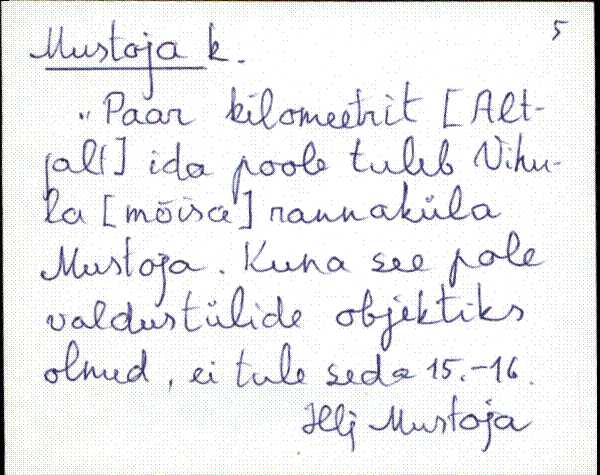 5
Mustoja k.
"Paar kilomeetrit [Alt-
jalt] ida poole tuleb Vihu-
la [mõisa] rannaküla
Mustoja. Kuna see pole
valdustülide objektiks
olnud, ei tule seda 15.-16.
Mustoja